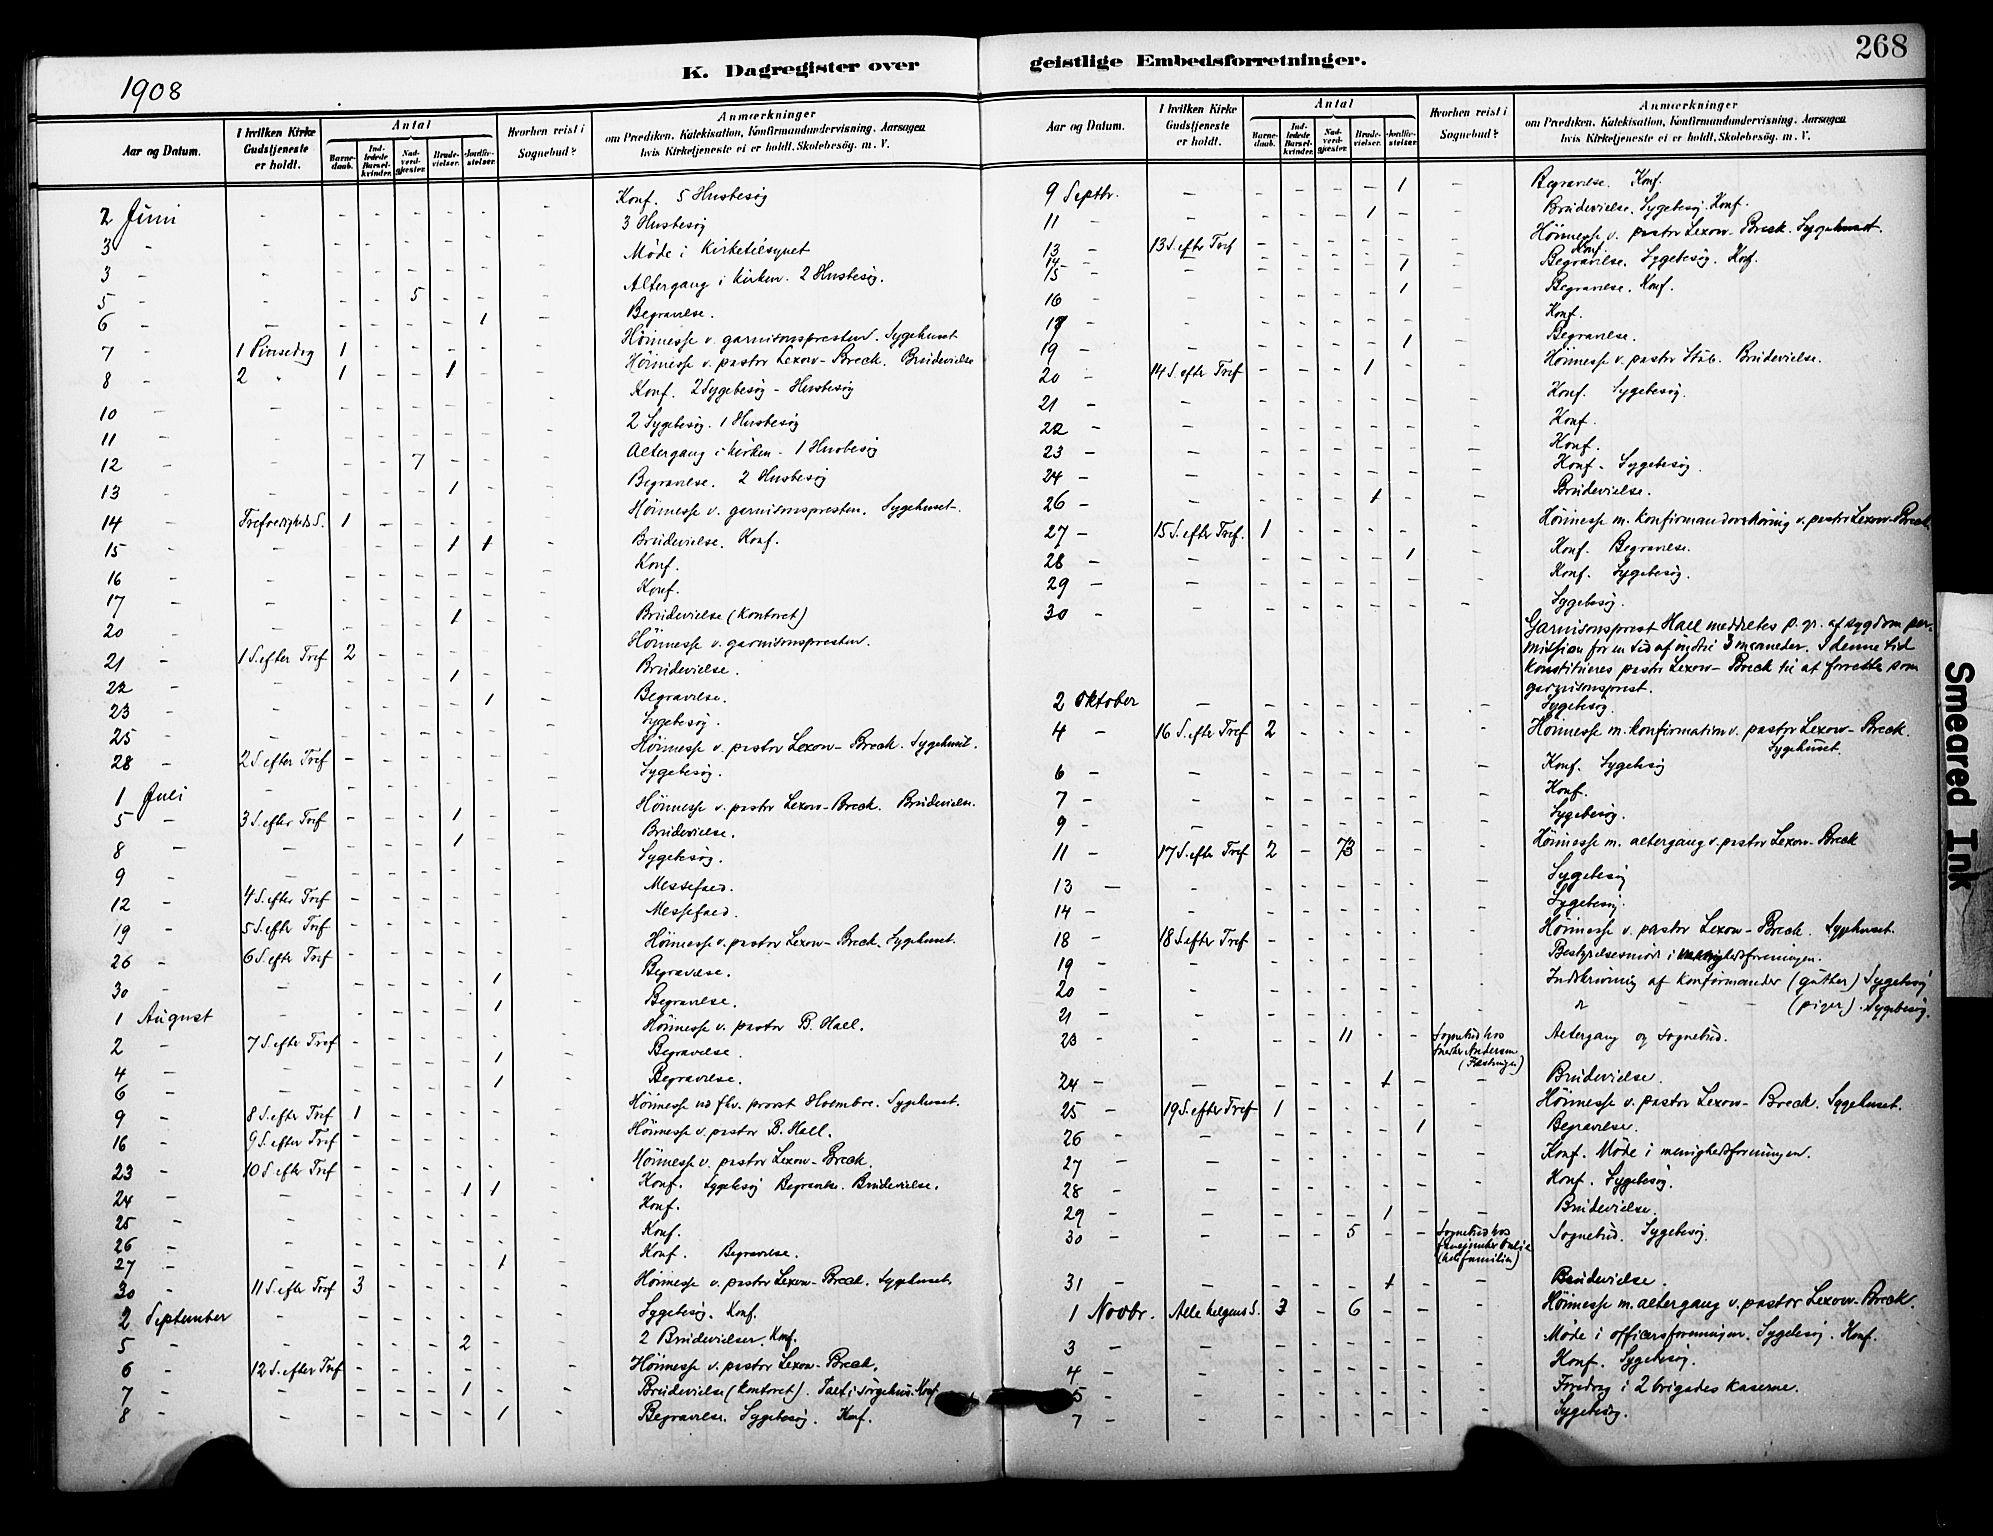 268
1908
K. Dagregister over geistlige Embedsforretninger.
Aar og Datum. I hvilken Kirke Gudstjeneste er holdt. Antal Barnedaab. Indledede Barselkvinder. Nadverdgjæster. Brudevielser. Jordfæstelser. Hvorhen reist i Sognebud? Anmærkninger om Prædiken, Katekisation, Konfirmandundervisning, Aarsagen hvis Kirketjeneste ei er holdt, Skolebesøg. m. V.
2 Juni - - - - - - - Konf. 5 Husbesøg
3 - - - - - - - - 3 Husbesøg
3 - - - - - - - - Møde i Kirketilsynet
5 - - - - 5 - - - Altergang i kirken. 2 Husbesøg.
6 - - - - - - 1 - Begravelse.
7 - 1 Pinsedag 1 - - - - - Høimesse v. garnisonspresten. Sygehuset
8 - 2 " 1 - - 1 - - Høimesse v. pastor Lexow-Breck. Brudevielse
10 - - - - - - - - Konf. 2 Sygebesøg - Husbesøg
11 - - - - - - - - 2 Sygebesøg. 1 Husbesøg
12 - - - - 7 - - - Altergang i kirken - 1 Husbesøg
13 - - - - - 1 - - Begravelse. 2 Husbesøg
14 - Trefoldigheds S. 1 - - - - - Høimesse v. garnisonspresten. Sygehuset.
15 - - - - - 1 1 - Brudevielse. Konf.
16 - - - - - - - - Konf.
17 - - - - - - - - Konf.
20 - - - - - 1 - - Brudevielse (kontoret)
21 - 1 S. efter Tref 2 - - - - - Høimesse v. garnisonspresten.
22 - - - - - 1 - - Brudevielse.
23 - - - - - - 1 - Begravelse.
25 - - - - - - - - Sygebesøg.
28 - 2 S. efter Tref - - - - - - Høimesse v. pastor Lexow-Breck. Sygehuset.
1 Juli - - - - - - - Sygebesøg.
5 - 3 S. efter Tref - - - 1 - - Høimesse v. pastor Lexow-Breck. Brudevielse.
8 - - - - - 1 - - Brudevielse.
9 - - - - - - - - Sygebesøg.
12 - 4 S. efter Tref - - - - - - Messefald.
19 - 5 S. efter Tref - - - - - - Messefald.
26 - 6 S. efter Tref - - - - - - Høimesse v. pastor Lexow-Breck. Sygehuset.
30 - - - - - - 1 - Begravelse.
1 August - - - - - 1 - Begravelse.
2 - 7 S. efter Tref - - - - - - Høimesse v. pastor B. Hall.
4 - - - - - - 1 - Begravelse.
6 - - - - - - 1 - Begravelse.
9 - 8 S. efter Tref 1 - - - - - Høimesse ved fhv. provst Holmboe. Sygehuset.
16 - 9 S. efter Tref - - - - - - Høimesse v. pastor B. Hall.
23 - 10 S. efter Tref - - - - - - Høimesse v. pastor Lexow-Breck.
24 - - - - - 1 1 - Konf. Sygebesøg Begravelse. Brudevielse.
25 - - - - - - - - Konf.
26 - - - - - - - - Konf.
27 - - - - - - 1 - Konf. Begravelse.
30 - 11 S. efter Tref 3 - - - - - Høimesse v. pastor Lexow-Breck. Sygehuset.
2 September - - - - - - - Sygebesøg. Konf.
5 - - - - - 2 - - 2 Brudevielser. Konf.
6 - 12 S. efter Tref - - - - - - Høimesse v. pastor Lexow-Breck.
7 - - - - - 1 - - Brudevielse (kontoret). Tale i sørgehus. Konf
8 - - - - - - 1 - Begravelse. Sygebesøg. Konf.
Aar og Datum. I hvilken Kirke Gudstjeneste er holdt. Antal Barnedaab. Indledede Barselkvinder. Nadverdgjæster. Brudevielser. Jordfæstelser. Hvorhen reist i Sognebud? Anmærkninger om Prædiken, Katekisation, Konfirmandundervisning, Aarsagen hvis Kirketjeneste ei er holdt, Skolebesøg. m. V.
9 Septbr. - - - - - 1 - Begravelse. Konf.
11 - - - - 1 - - Brudevielse. Sygebesøg. Konf.
13 - 13 S. efter Tref - - - - - - Høimesse v. pastor Lexow-Breck. Sygehuset.
14 - - - - - - - Konf.
15 - - - - - 1 - Begravelse. Sygebesøg. Konf.
16 - - - - - - 1 - Begravelse. Konf.
17 - - - - - - - Konf.
19 - - - - - - 1 - Begravelse.
20 - 14 S. efter Tref - - - 1 - - Høimesse v. pastor Stub. Brudevielse.
21 - - - - - - - - Konf. Sygebesøg.
22 - - - - - - - - Konf.
23 - - - - - - - - Konf.
24 - - - - - - - - Konf. Sygebesøg.
26 - - - - - 1 - - Brudevielse.
27 - 15 S. efter Tref. 1 - - - - - Høimesse m. konfirmandoverhøring v. pastor Lexow-Breck.
28 - - - - - - 1 - Konf. Begravelse.
29 - - - - - - - - Konf. Sygebesøg.
30 - - - - - - - - Sygebesøg.
Garnisonsprest Hall meddeltes p. gr. af sygdom per-
mission for en tid af indtil 3 maaneder. I denne tid
konstitueres pastor Lexow-Breck til at forrette som
garnisonsprest.
2 Oktober - - - - - - - Sygebesøg.
4 - 16 S. efter Tref 2 - - - - - Høimesse m. konfirmation v. pastor Lexow-Breck.
Sygehuset.
6 - - - - - - - - Konf. Sygebesøg
7 - - - - - - - - Konf.
9 - - - - - - - - Sygebesøg.
11 - 17 S. efter Tref 2 - 73 - - - Høimesse m. altergang v. pastor Lexow-Breck
13 - - - - - - - - Sygebesøg
14 - - - - - - - - Sygebesøg.
18 - 18 S. efter Tref - - - - - - Høimesse v. pastor Lexow-Breck. Sygehuset.
19 - - - - - - - - Bestyrelsesmøde i menighedsforeningen.
20 - - - - - - - - Indskrivning af konfirmander (gutter) Sygebesøg
21 - - - - - - - - " - - (piger). Sygebesøg.
23 - - - - 11 - - Sognebud hos Andersen (Fæstningen) Altergang og sognebud.
24 - - - - - 1 - - Brudevielse.
25 - 19 S. efter Tref 1 - - - - - Høimesse v. pastor Lexow-Breck. Sygehuset.
26 - - - - - - 1 - Begravelse.
27 - - - - - - - - Konf. Møde i menighedsforeningen.
28 - - - - - - - - Konf. Sygebesøg.
29 - - - - - 1 - - Brudevielse.
30 - - - - 5 - - Sognebud hos Sognebud. Sygebesøg.
31 - - - - - 1 - - Brudevielse.
1 Novbr. Alle helgens S. 3 - 6 - - - Høimesse m. altergang v. pastor Lexow-Breck.
3 - - - - - - - - Møde i officersforeningen. Sygebesøg. Konf.
4 - - - - - - - - Konf. Sygebesøg.
5 - - - - - - - - Foredrag i 2 brigades kaserne.
7 - - - - - - - - Sygebesøg.
Smeared Ink